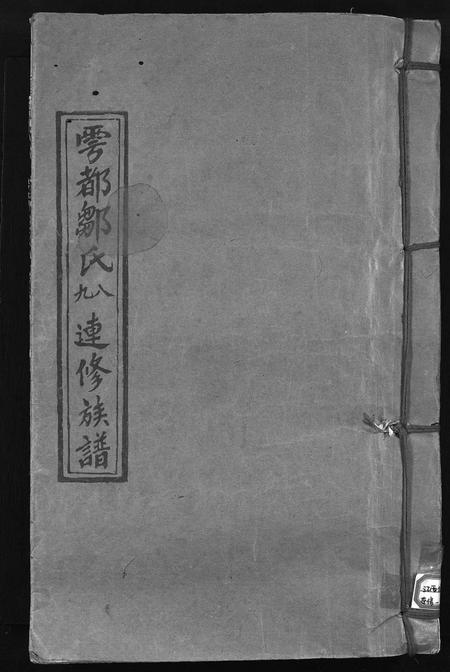 雩都鄒氏八九連修族譜
江西